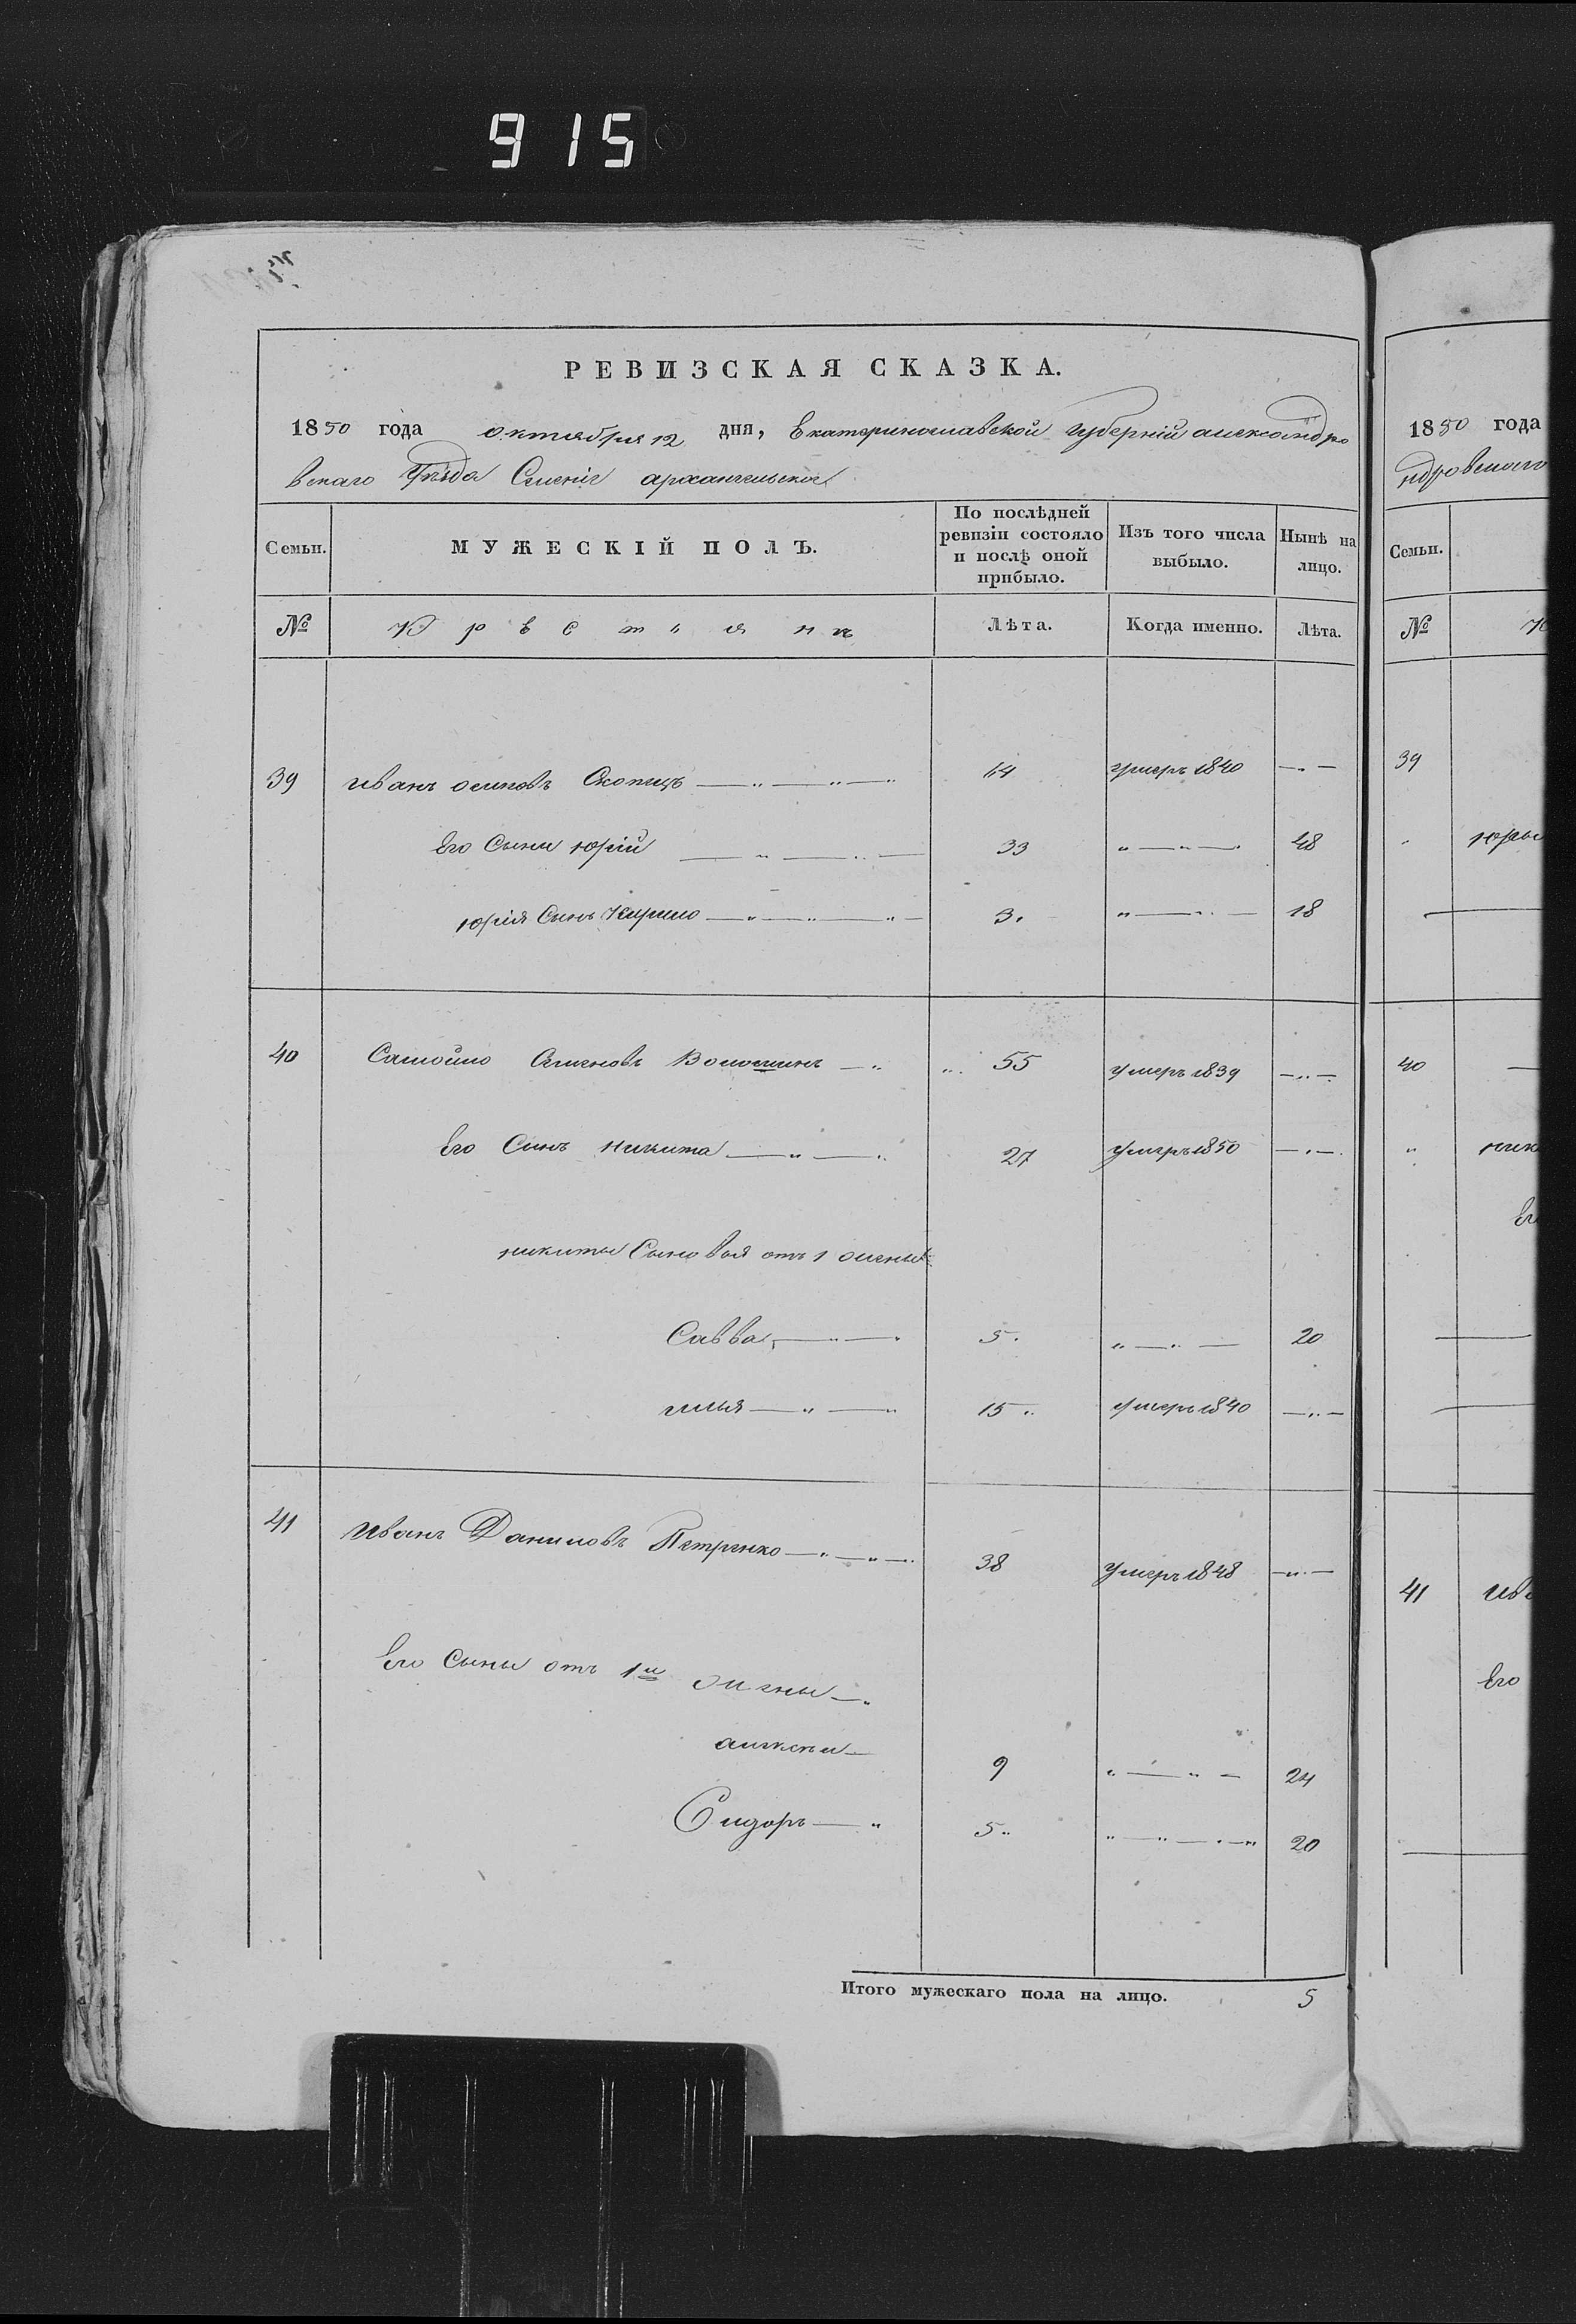 915
РЕВИЗСКАЯ СКАЗКА.
1850 года октября 12 дня, Екатеринославской губерніи александро
вскаго Уѣзда Сѣленія архангельскаго
Семьи.
МУЖЕСКІЙ ПОЛЪ.
По послѣдней ревизіи состояло и послѣ оной прибыло.
Изъ того числа выбыло.
Нынѣ на лицо.
№ Крестиянъ Лѣта. Когда именно. Лѣта.
39 иванъ осиповъ Скопецъ — " — " — " 64 умеръ 1840 — " —
Его Сыни юрій — " — " — 33 " — " — " 48
юрія Сынъ Кирило — " — " — " — 3. " — " — 18
40 Самойло Семеновъ Волошинъ — " " 55 умеръ 1839 — " —
Его Синъ никита — " — " 27 умеръ 1850 — " —
никиты Сыновья отъ 1 жены
Савва — " — " 5. " — " — 20
илья — " — " 15 " умеръ 1840 — " —
41 иванъ Даниловъ Петренко — " — " — " 38 умеръ 1848 — " —
Его Сыны отъ 1й жены — "
алексей — 9 " — " — 24
Сидоръ — " 5 " " — " — " — " 20
Итого мужескаго пола на лицо. 5
1850 года
ндровскаго
Семьи.
№
39
юрія
40
ник
Ег
41 ив
Его